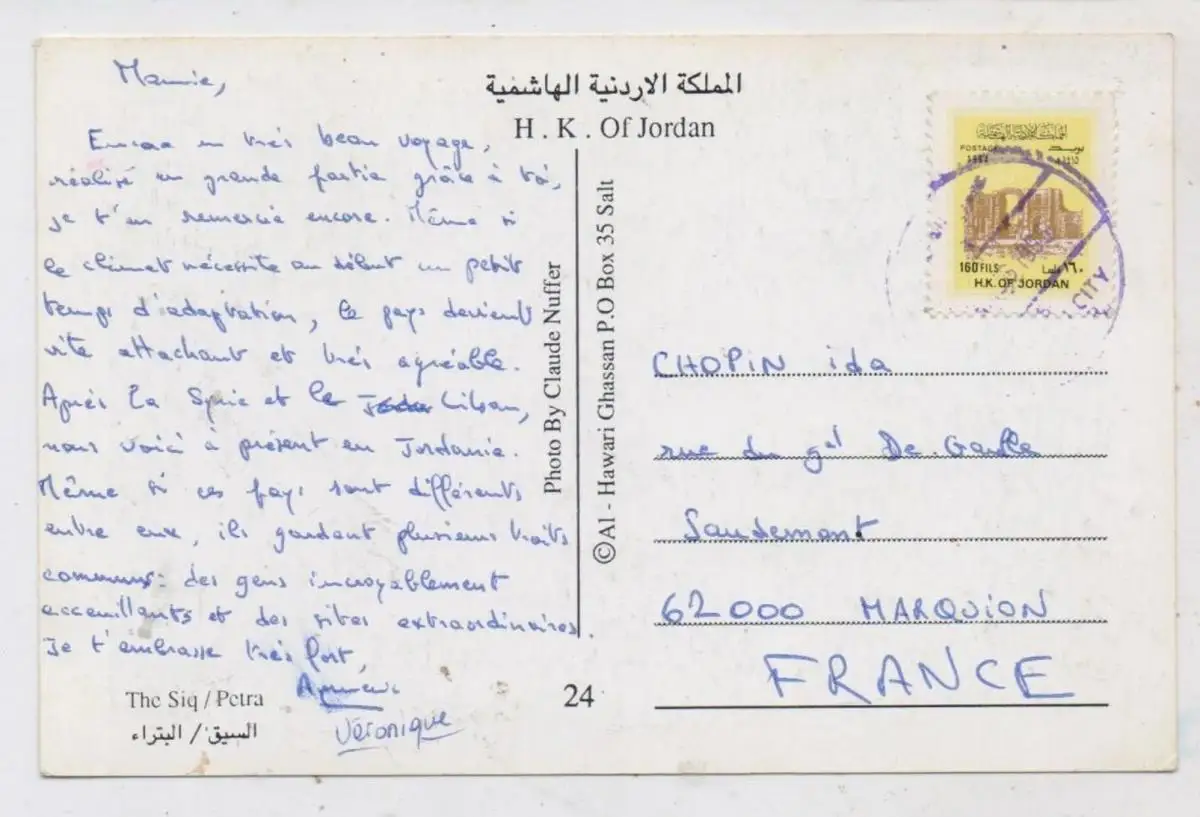 Mamie,
Encore un très beau voyage,
réalisé en grande partie grâce à toi,
je t'en remercie encore. Même si
le climat nécessite au début un petit
temps d'adaptation, le pays devient
vite attachant et très agréable.
Après la Syrie et le Liban,
nous voici à présent en Jordanie.
Même si ces pays sont différents
entre eux, ils gardent plusieurs traits
communs: des gens incroyablement
acceuillants et des sites extraordinaires.
Je t'embrasse très fort,
Véronique
The Siq / Petra
السيق / البتراء
المملكة الاردنية الهاشمية
H . K . Of Jordan
Photo By Claude Nuffer
©Al - Hawari Ghassan P.O Box 35 Salt
24
المملكة الأردنية الهاشمية
POSTAGE
بريد
160 FILS
١٦٠ فلسا
H.K. OF JORDAN
CITY
CHOPIN ida
rue du gal De Gaulle
Saudemont
62000 MARQUION
FRANCE